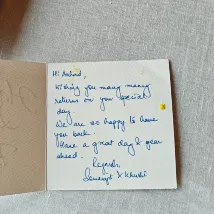 Hi
Wishing you many many
returns on your special
day.
We are so happy to have
you back.
Have a great day & year
ahead.
Regards,